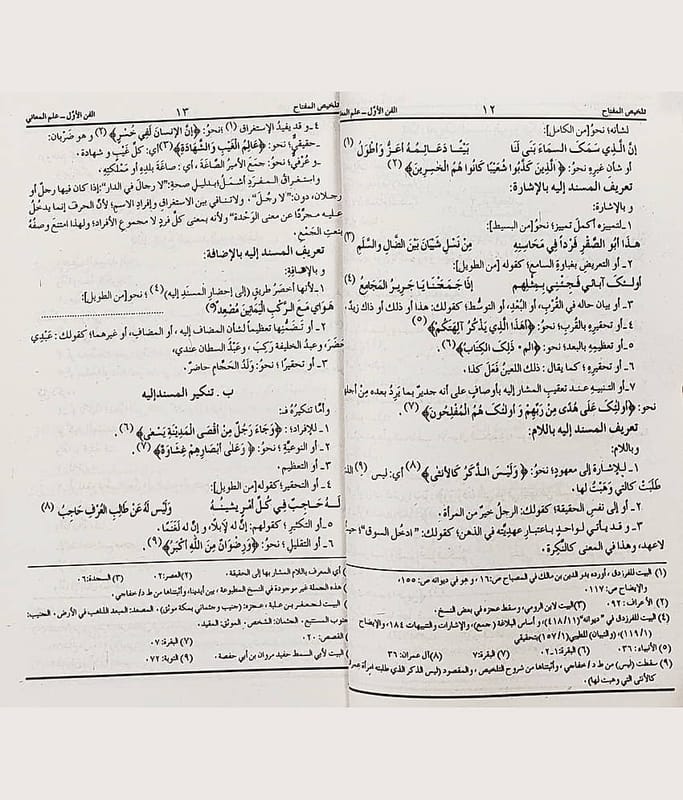 تلخيص المفتاح ١٢ الفن الأوّل ــ علم المعا
لشأنه؛ نحوُ[من الكامل]:
إنَّ الَّذِي سَمَكَ السماءَ بَنَى لَنَا بَيْتًا دَعَائِمُهُ أَعَزُّ وَأَطْوَلُ (١)
أو شأن غيره نحوُ: ﴿الَّذِينَ كَذَّبُوا شُعَيْبًا كَانُوا هُمُ الْخَسِرِينَ﴾ (٢)
تعريف المسند إليه بالإشارة:
و بالإشارة:
١ـ لتمييزه أكملَ تمييز؛ نحوُ[من البسيط]:
هـذا أبُو الصَّقْرِ فَرْداً فِي مَحَاسِنِهِ مِنْ نَسْلِ شَيْبَانَ بَيْنَ الضَّالِ وَالسَّلَمِ (٣)
٢ـ أو التعريض بغباوة السامع؛ كقوله [من الطويل]:
أولئكَ آبائي فَجِئْنِي بِمِثْلِهِم إذَا جَمَعَتْنَا يَا جَرِيرُ المَجَامِعُ (٤)
٣ـ أو بيان حاله في القُرْبِ، أو البُعْدِ، أو التوسُّط؛ كقولك: هذا أو ذلك أو ذاك زيدٌ.
٤ـ أو تحقيره بالقُربِ؛ نحوُ: ﴿أَهَذَا الَّذِي يَذْكُرُ آلِهَتَكُمْ﴾ (٥)
٥ـ أو تعظيمِهِ بالبعد؛ نحوُ: ﴿الم ٠ ذَلِكَ الكِتَابُ﴾ (٦).
٦ـ أو تحقيره؛ كما يقال: ذلك اللعينُ فَعَلَ كذا.
٧ـ أو التنبيهِ عند تعقيبِ المشار إليه بأوصافٍ على أنه جديرٌ بما يَرِدُ بعده مِنْ أجلـ
نحو: ﴿أُولَئِكَ عَلَى هُدًى مِنْ رَبِّهِمْ وَ أُولَئِكَ هُمُ الْمُفْلِحُونَ﴾ (٧).
تعريف المسند إليه باللام:
وباللام:
١ـ للإشارة إلى معهودٍ؛ نحوُ: ﴿وَلَيْسَ الـذَّكَرُ كَالأُنْثَى﴾ (٨) أي: ليس (٩) الذ
طَلَبَتْ كالتي وَهَبَتْ لها.
٢ـ أو إلى نفسِ الحقيقة؛ كقولك: الرجلُ خيرٌ من المرأة.
٣ـ و قد يـأتـي لـواحـدٍ بـاعـتـبارِ عهديّتِه في الذهن؛ كقولك: "ادخُل السوق"؛ حيـ
لاعهد، وهذا في المعنى كالنَّكِرة.
(١) البيت للفرزدق، أورده بدر الدين بن مالك في المصباح ص١٦، و هو في ديوانه ص: ١٥٥،
والإيضاح ص ١١٧.
(٢) الأعراف: ٩٢. (٣) البيت لابن الرومي، وسقط عجزه في بعض النسخ.
(٤) البيت للفرزدق في " ديوانه"(٤١٨/١)، و أساس البلاغة (جمع)، والإشارات و التنبيهات ١٨٤، والإيضاح
(١١٩/١)، و(التبيان) للطيبي(١٥٧/١)بتحقيقي
(٥) الأنبياء: ٣٦. (٦) البقرة: ١ـ٢. (٧) البقرة: ٧ (٨) آل عمران: ٣٦
(٩) سقطت (ليس) من ط د/ خفاجي، وأثبتناها من شروح التلخيص، و المقصود (ليس الذكر الذي طلبته امرأة عمرا
كالأنثى التي وهبت لها).
تلخيص المفتاح ١٣ الفن الأوّل ــ علم المعاني
٤ـ و قد يفيدُ الإستغراق (١)؛نحوُ: ﴿إِنَّ الإِنسَانَ لَفِي خُسْرٍ﴾ (٢) و هو ضَرْبان:
ـ حقيقيٍّ؛ نحو: ﴿عَالِمُ الْغَيْبِ وَ الشَّهَادَةِ﴾ (٣) أي: كلِّ غَيْبٍ و شهادة.
ـ و عُرْفيّ؛ نحوُ: جَمَعَ الأميرُ الصَّاغَةَ، أي: صاغَةَ بلدِهِ أو مَمْلَكَتِهِ.
واسْتغراقُ الـمفـرَدِ أشْمَلُ؛بـدلـيـلِ صحةِ:"لا رجالَ في الدار"؛إذا كان فيها رجلٌ أو
رجلان، دون:"لا رجُلَ". ولاتنافي بين الاستغراق وإفرادِ الاسم؛ لأنّ الحرف إنما يدخُلُ
عليـه مـجـرَّدًا عن معنى الوَحْدة" ولأنه بمعنى كلِّ فردٍ لا مجموعِ الأفراد؛ ولهذا امتنَعَ وصفُهُ
بِنعتِ الجَمْعِ.
تعريف المسند إليه بالإضافة:
و بالإضافة:
١ـ لأنها أخصَرُ طريقٍ (إلى إحضارِ المسندِ إليه) (٤)؛ نحو[من الطويل]:
هَـوَايَ مَـعَ الـرَّكْبِ الْيَمَانِينَ مُصْعِدٌ(٥)
٢ـ أو تَـضَـمُّـنِـها تعظيماً لشأن المضاف إليه، أو المضاف، أو غيرهما؛ كقولك: عَبْدِي
حَضَرَ، وعبدُ الخليفة رَكِبَ، وعَبْدُ السلطان عندي.
٣ـ أو تحقيرًا؛ نحوُ: وَلَدُ الحَجَّامِ حاضرٌ.
ب ـ تنكير المسندإليه
وأمَّا تنكيرُهُ فَـ:
١ـ للإفراد؛: ﴿وَجَاءَ رَجُلٌ مِنْ أَقْصَى الْمَدِينَةِ يَسْعَى﴾ (٦).
٢ـ أو النوعيَّة؛ نحوُ: ﴿وَعَلَى أَبْصَارِهِمْ غِشَاوَةٌ﴾ (٧)
٣ـ أو التعظيم.
٤ـ أو التحقير؛ كقوله[من الطويل]:
لَـهُ حَـاجِـبٌ فِي كُـلِّ أَمْرٍ يَشِيـنُـهُ وَلَيْسَ لَهُ عَنْ طَالِبِ العُرْفِ حَاجِبُ (٨)
٥ـ أو التكثيرِ؛ كقولهم: إنَّ له لإبلًا، و إنَّ له لَغَنَمًا.
٦ـ أو التقليلِ؛ نحوُ: ﴿وَرِضْوَانٌ مِنَ اللَّهِ أَكْبَرُ﴾ (٩).
أي المعرف باللام المشار بها إلى الحقيقة. (٢)العصر:٢. (٣) السجدة:٦.
هذه الجملة غير موجودة في النسخ المطبوعة، بين أيدينا، وأثبتناها من ط د/ خفاجي.
البيت لـجعفر بن علبة، عجزه: (جنيب و جثماني بمكة موثق). المصعد: المبعد الذاهب في الأرض. الجنيب:
المستتبع. الجثمان: الشخص. الموثق: المقيد.
القصص: ٢٠. (٧) البقرة: ٧
البيت لأبي السمط حفيد مروان بن أبي حفصة. (٩) التوبة: ٧٢